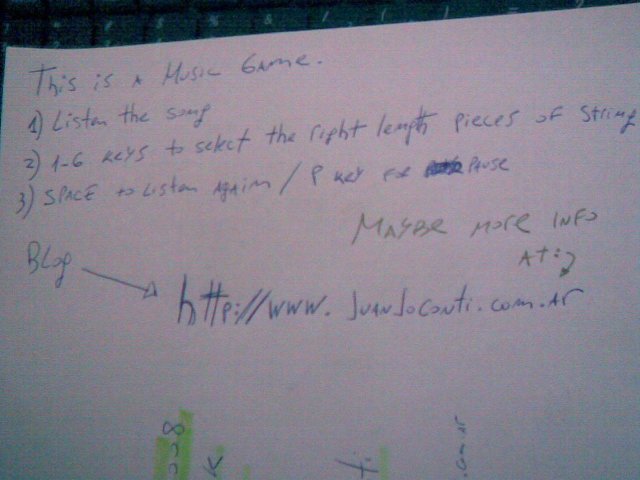 This is a Music Game.
1) Listen the song
2) 1-6 keys to select the right length pieces of string
3) SPACE to Listen Again / P key for PAUSE
Maybe more info
At:
Blog
http://www.juanjoconti.com.ar
.com.ar